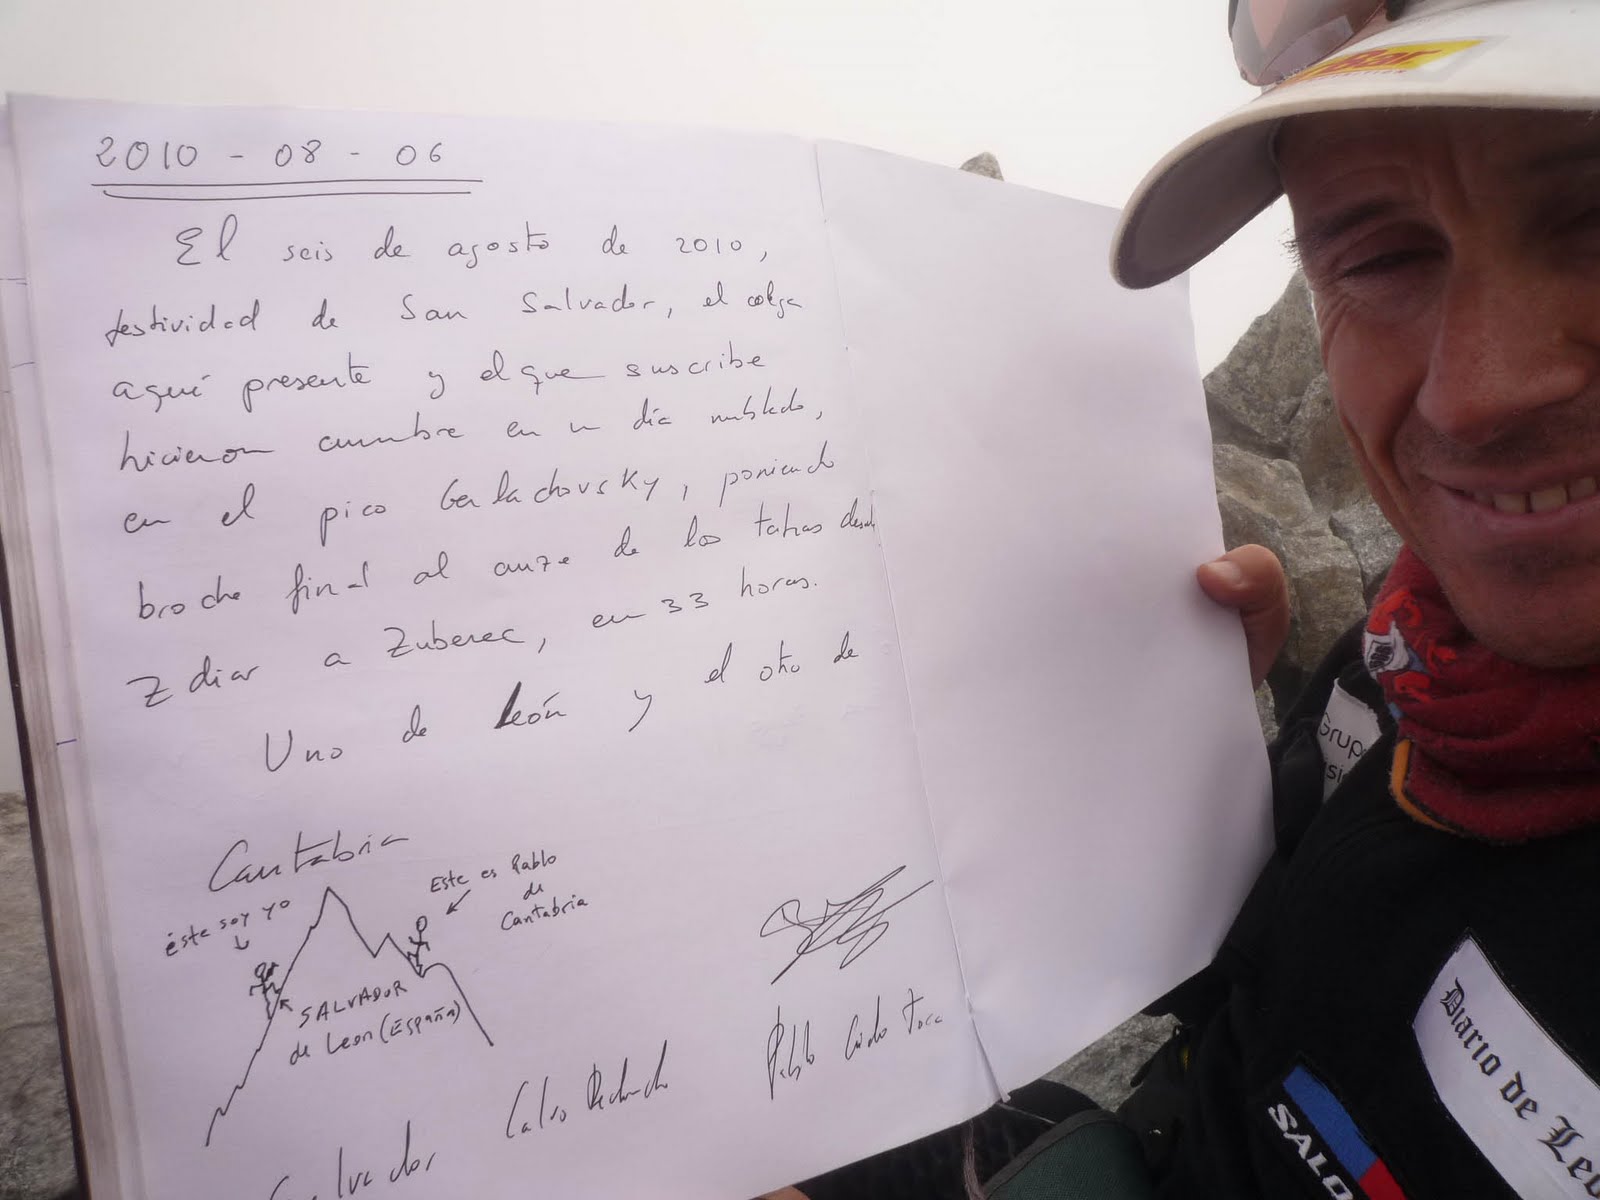 2010 - 08 - 06
El seis de agosto de 2010,
festividad de San Salvador, el colega
aquí presente y el que suscribe
hicieron cumbre en un día nublado,
en el pico Gerlachovsky, poniendo
broche final al cruze de los tatras desde
Zdiar a Zuberec, en 33 horas.
Uno de León y el otro de
Cantabria
éste soy yo
Este es Pablo
de
Cantabria
SALVADOR
de León (España)
Salvador Calvo Redondo
Pablo Criado Toca
Grup
Diario de Leó
SALO